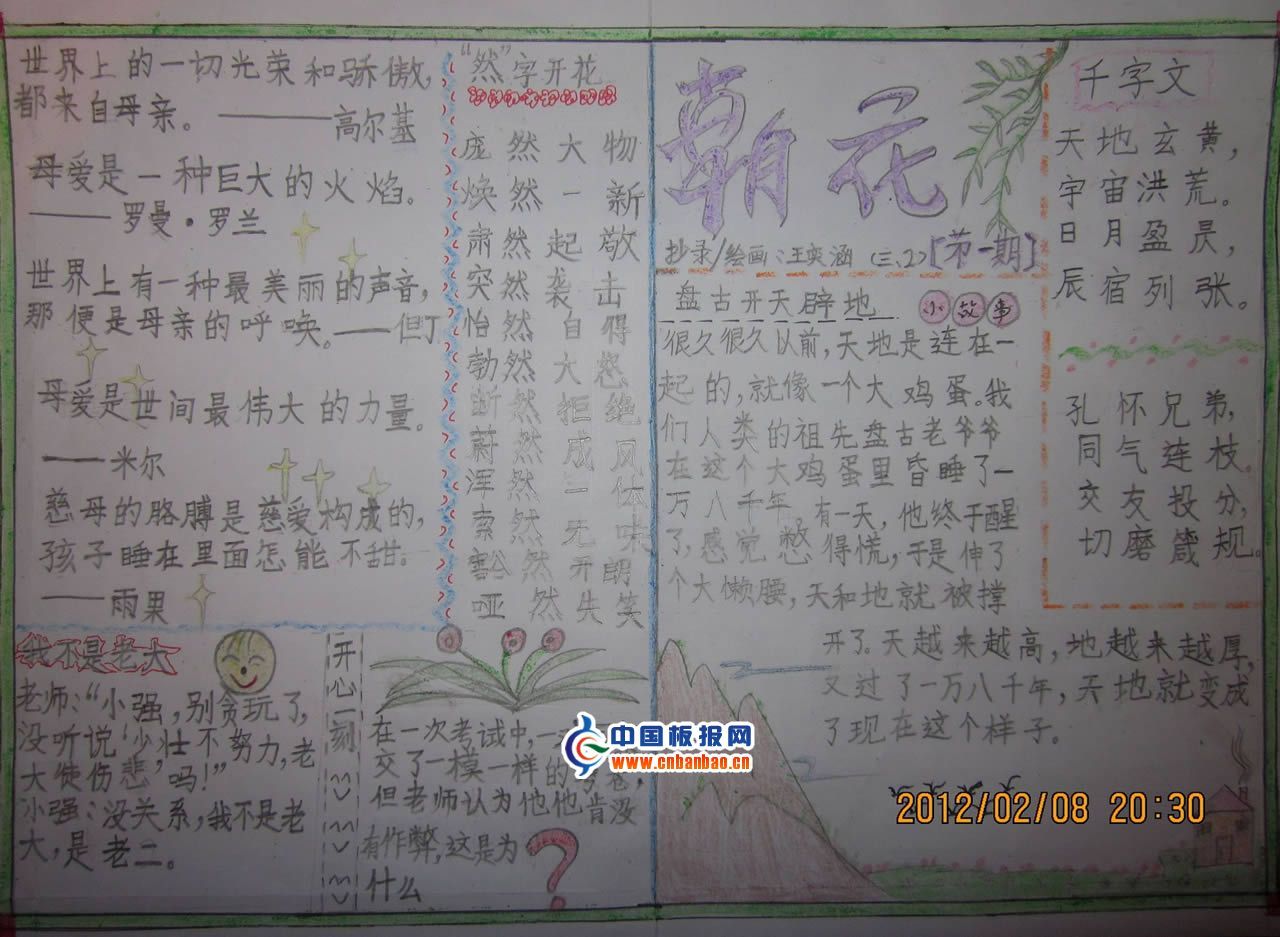 世界上的一切光荣和骄傲,
都来自母亲。
——高尔基
母爱是一种巨大的火焰。
——罗曼·罗兰
世界上有一种最美丽的声音,
那便是母亲的呼唤。——但丁
母爱是世间最伟大的力量。
——米尔
慈母的胳膊是慈爱构成的,
孩子睡在里面怎能不甜。
——雨果
“然”字开花
庞然大物
焕然一新
肃然起敬
突然袭击
怡然自得
勃然大怒
断然拒绝
蔚然成风
浑然一体
索然无味
豁然开朗
哑然失笑
我不是老大
老师:“小强,别贪玩了,
没听说‘少壮不努力,老
大徒伤悲’吗!”
小强:没关系,我不是老
大,是老二。
开心一刻
在一次考试中,一
交了一模一样的
但老师认为他他肯没
有作弊,这是为
什么
?
朝花
抄录/绘画:王奕涵(三、2)[第一期]
盘古开天辟地 小故事
很久很久以前,天地是连在一
起的,就像一个大鸡蛋。我
们人类的祖先盘古老爷爷
在这个大鸡蛋里昏睡了一
万八千年 有一天,他终于醒
了,感觉憋得慌,于是伸了
个大懒腰,天和地就被撑
开了。天越来越高,地越来越厚,
又过了一万八千年,天地就变成
了现在这个样子。
千字文
天地玄黄,
宇宙洪荒。
日月盈昃,
辰宿列张。
孔怀兄弟,
同气连枝。
交友投分,
切磨箴规。
中国板报网
www.cnbanbao.cn
2012/02/08 20:30